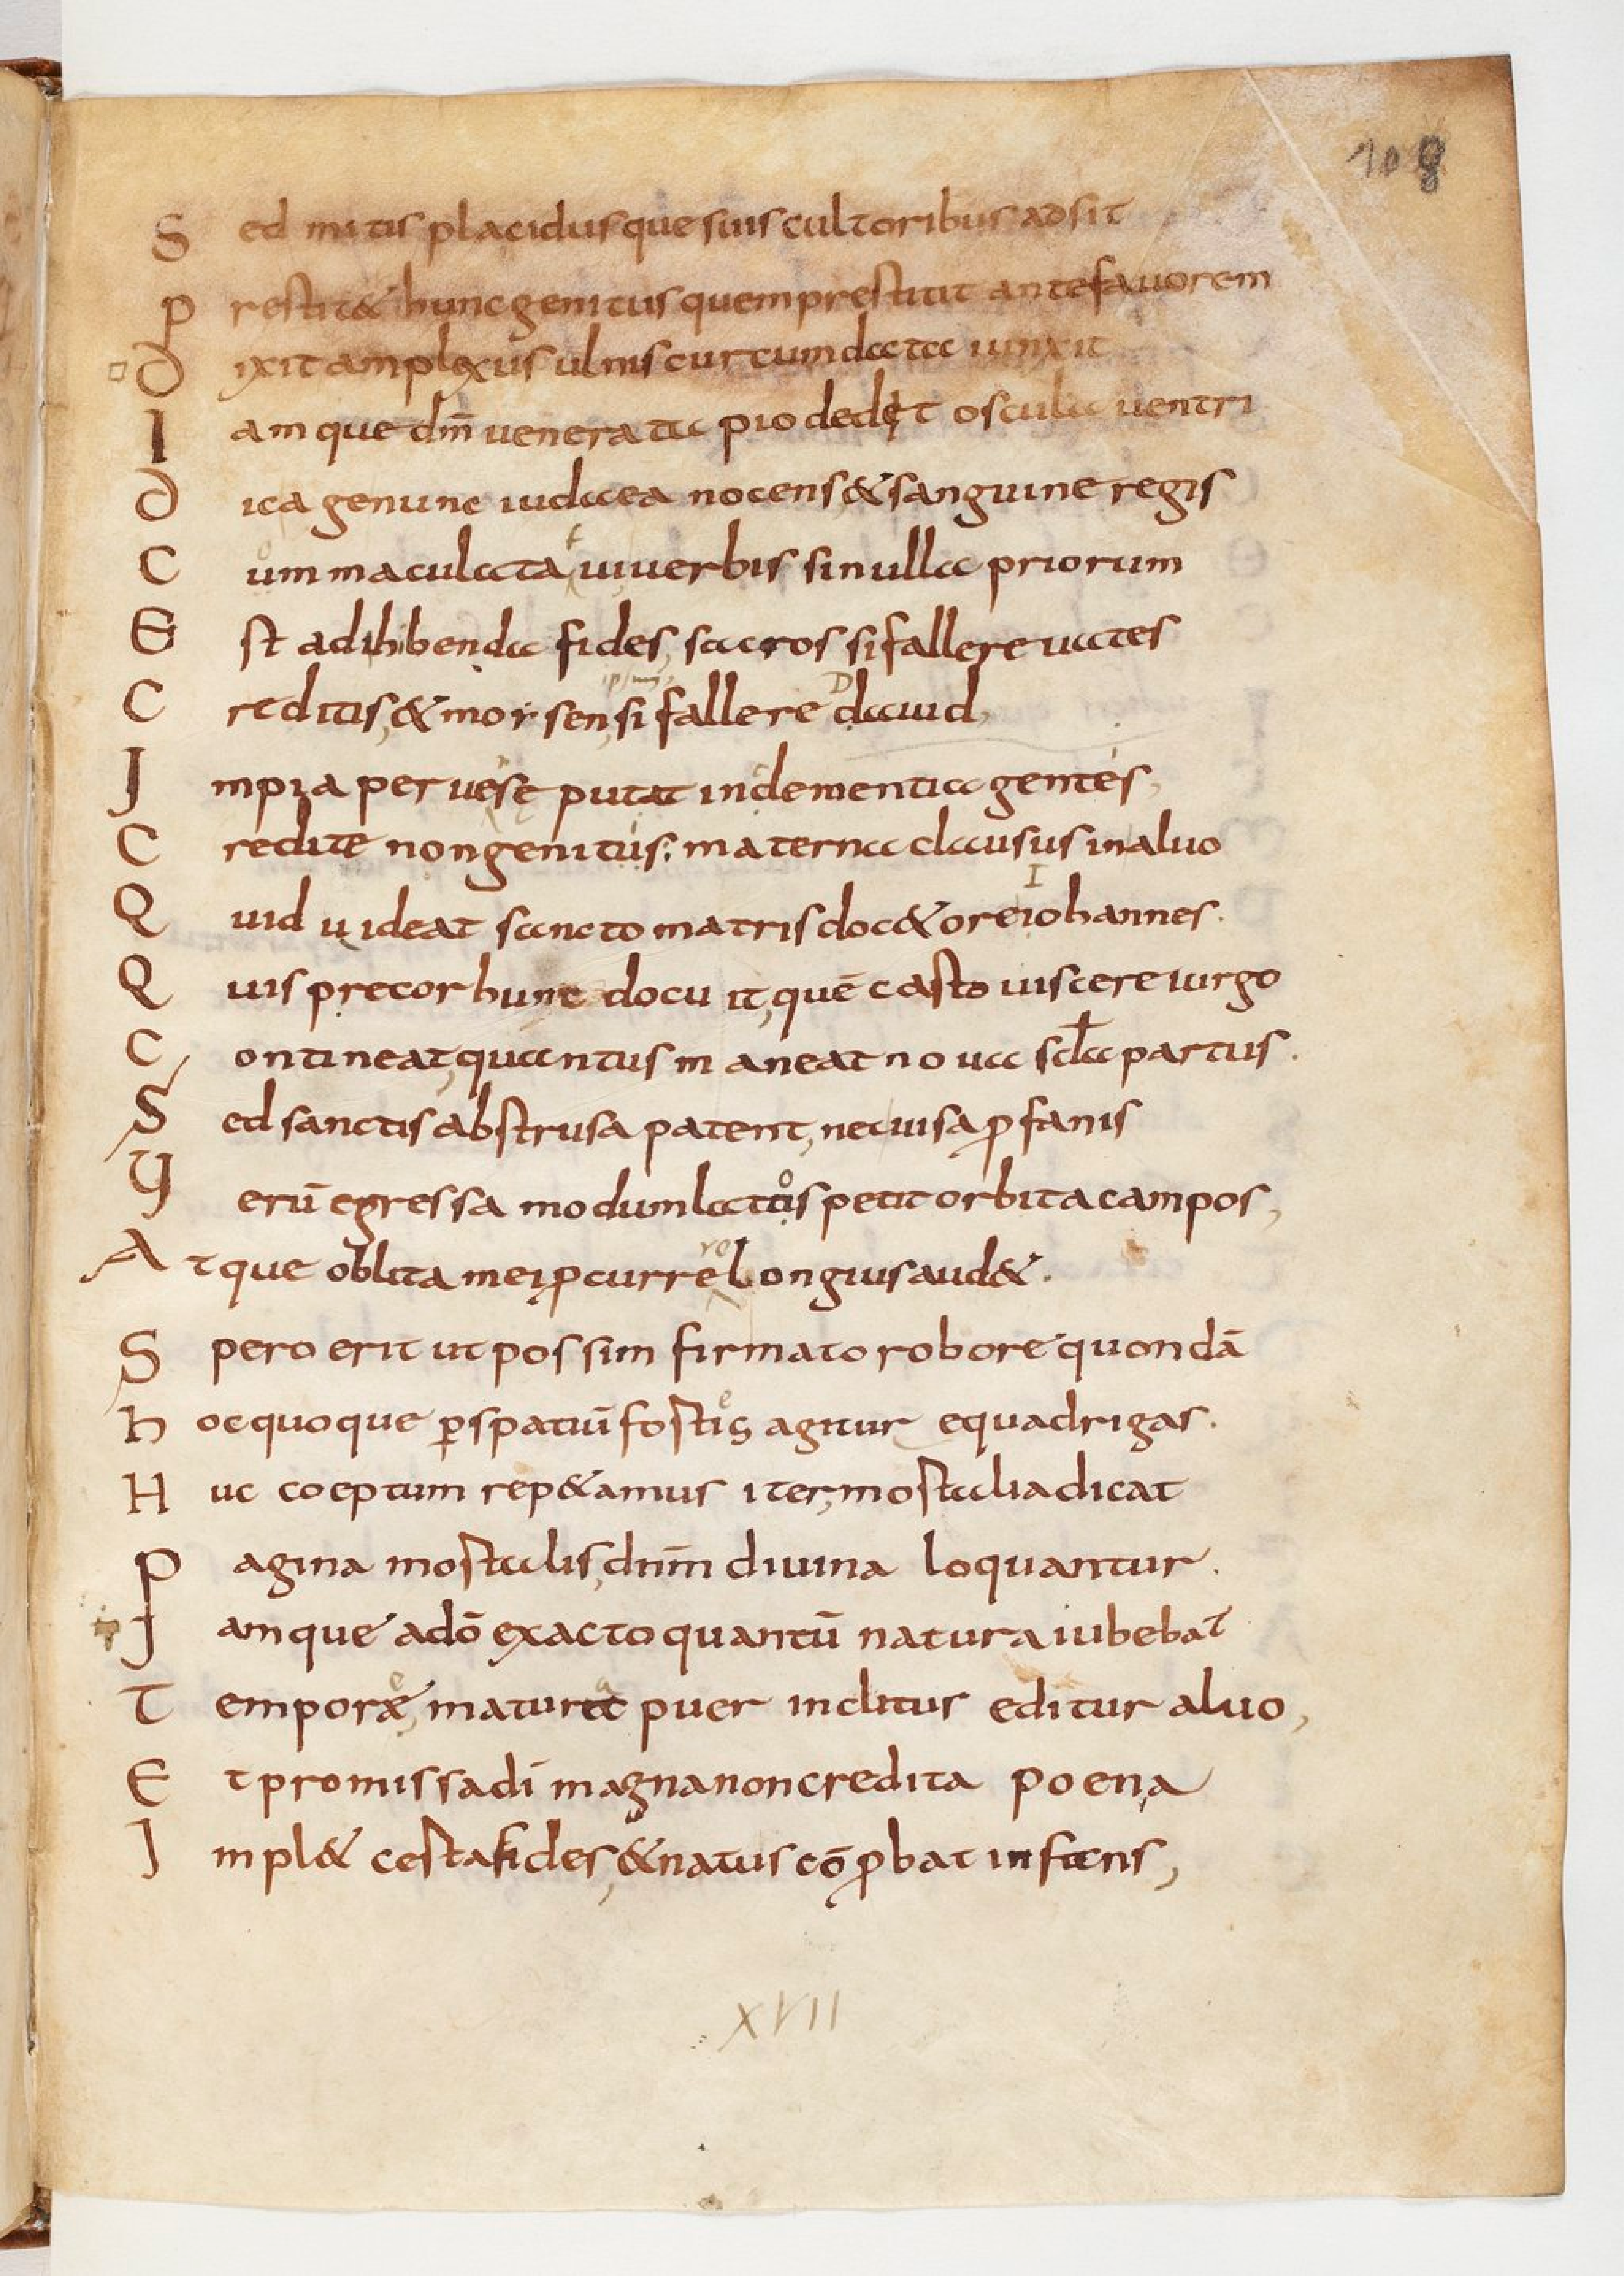 108
Sed mitis placidusque suis cultoribus adsit
Prestit& hunc genitus quem prestitit ante fauorem
Dixit amplexus ulnis curtum data iunxit
Iamque dm̄ venerata pio dedęt oscula uentri
Dicagenunc iudaea nocens & sanguine regis
Cum maculata uiuerbis si nulla priorum
Est adihibenda fides, sacros si fallere uates
Creditis, & morsen, si fallere dauid,
Impia peruese putat indementia gentes,
Credite non genitus: materna clausus in aluo
Quid uideat sancto matris doc& ore iohannes.
Quis precor hunc docuit, quē casto uiscere uirgo
Contineat, quantus maneat noua scła partus.
Sed sanctis abstrusa patent, nec uisa ꝓfanis
Verū egressa modum latus petit orbita campos,
Atque oblita mei ꝓcurre longius aud&.
Spero erit ut possim firmato robore quondā
Hoc quoque ꝑ spatiū fostis agitur equadrigas.
Huc coeptum rep&amus iter, mostalia dicat
Pagina mostalis, dnm̄ diuina loquantur.
Iamque adō exacto quantū natura iubebat
Tempore, matura puer inclitus editur aluo,
Et promissa dī magna non credita poena
Impl& cesta fides, & natus cō ꝓbat infans,
XVII